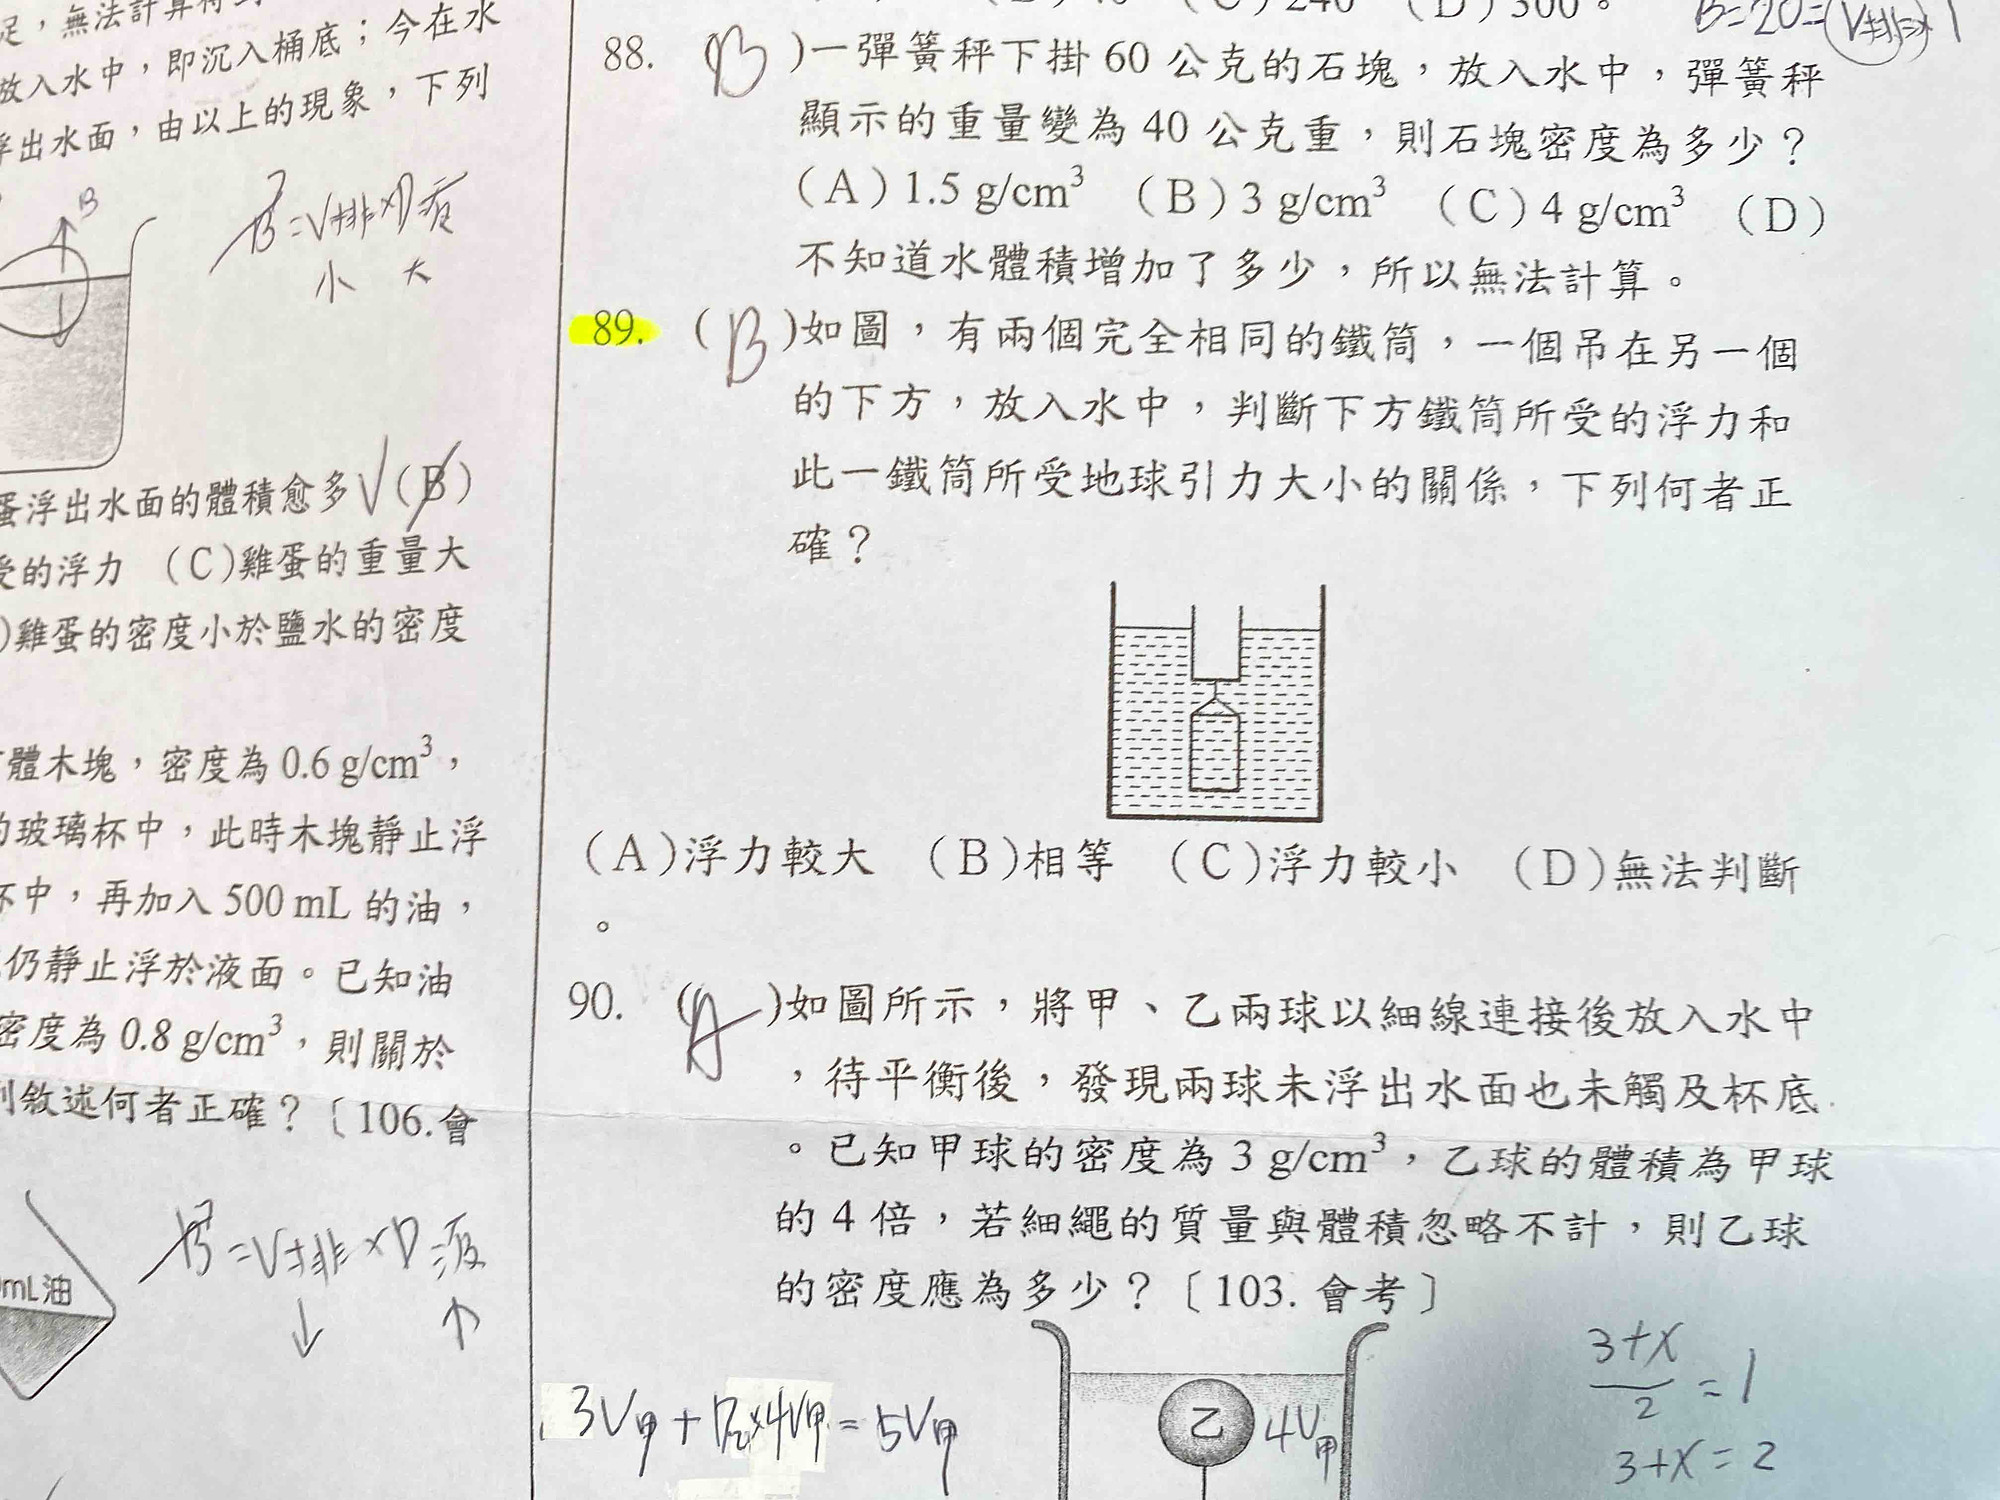 足，無法計算
放入水中，即沉入桶底；今在水
浮出水面，由以上的現象，下列
B
B=V排×D液
小 大
蛋浮出水面的體積愈多 (B)
受的浮力 (C)雞蛋的重量大
)雞蛋的密度小於鹽水的密度
體木塊，密度為 0.6 g/cm³，
的玻璃杯中，此時木塊靜止浮
杯中，再加入 500 mL 的油，
仍靜止浮於液面。已知油
密度為 0.8 g/cm³，則關於
列敘述何者正確？〔106.會
B=V排×D液
↓ ↑
mL油
(D)300。
B=20=V排×1
88. (B)一彈簧秤下掛 60 公克的石塊，放入水中，彈簧秤
顯示的重量變為 40 公克重，則石塊密度為多少？
(A)1.5 g/cm³ (B)3 g/cm³ (C)4 g/cm³ (D)
不知道水體積增加了多少，所以無法計算。
89. (B)如圖，有兩個完全相同的鐵筒，一個吊在另一個
的下方，放入水中，判斷下方鐵筒所受的浮力和
此一鐵筒所受地球引力大小的關係，下列何者正
確？
(A)浮力較大 (B)相等 (C)浮力較小 (D)無法判斷
。
90. (A)如圖所示，將甲、乙兩球以細線連接後放入水中
，待平衡後，發現兩球未浮出水面也未觸及杯底
。已知甲球的密度為 3 g/cm³，乙球的體積為甲球
的 4 倍，若細繩的質量與體積忽略不計，則乙球
的密度應為多少？〔103. 會考〕
3V甲+D乙×4V甲=5V甲
乙
4V甲
3+X/2=1
3+X=2